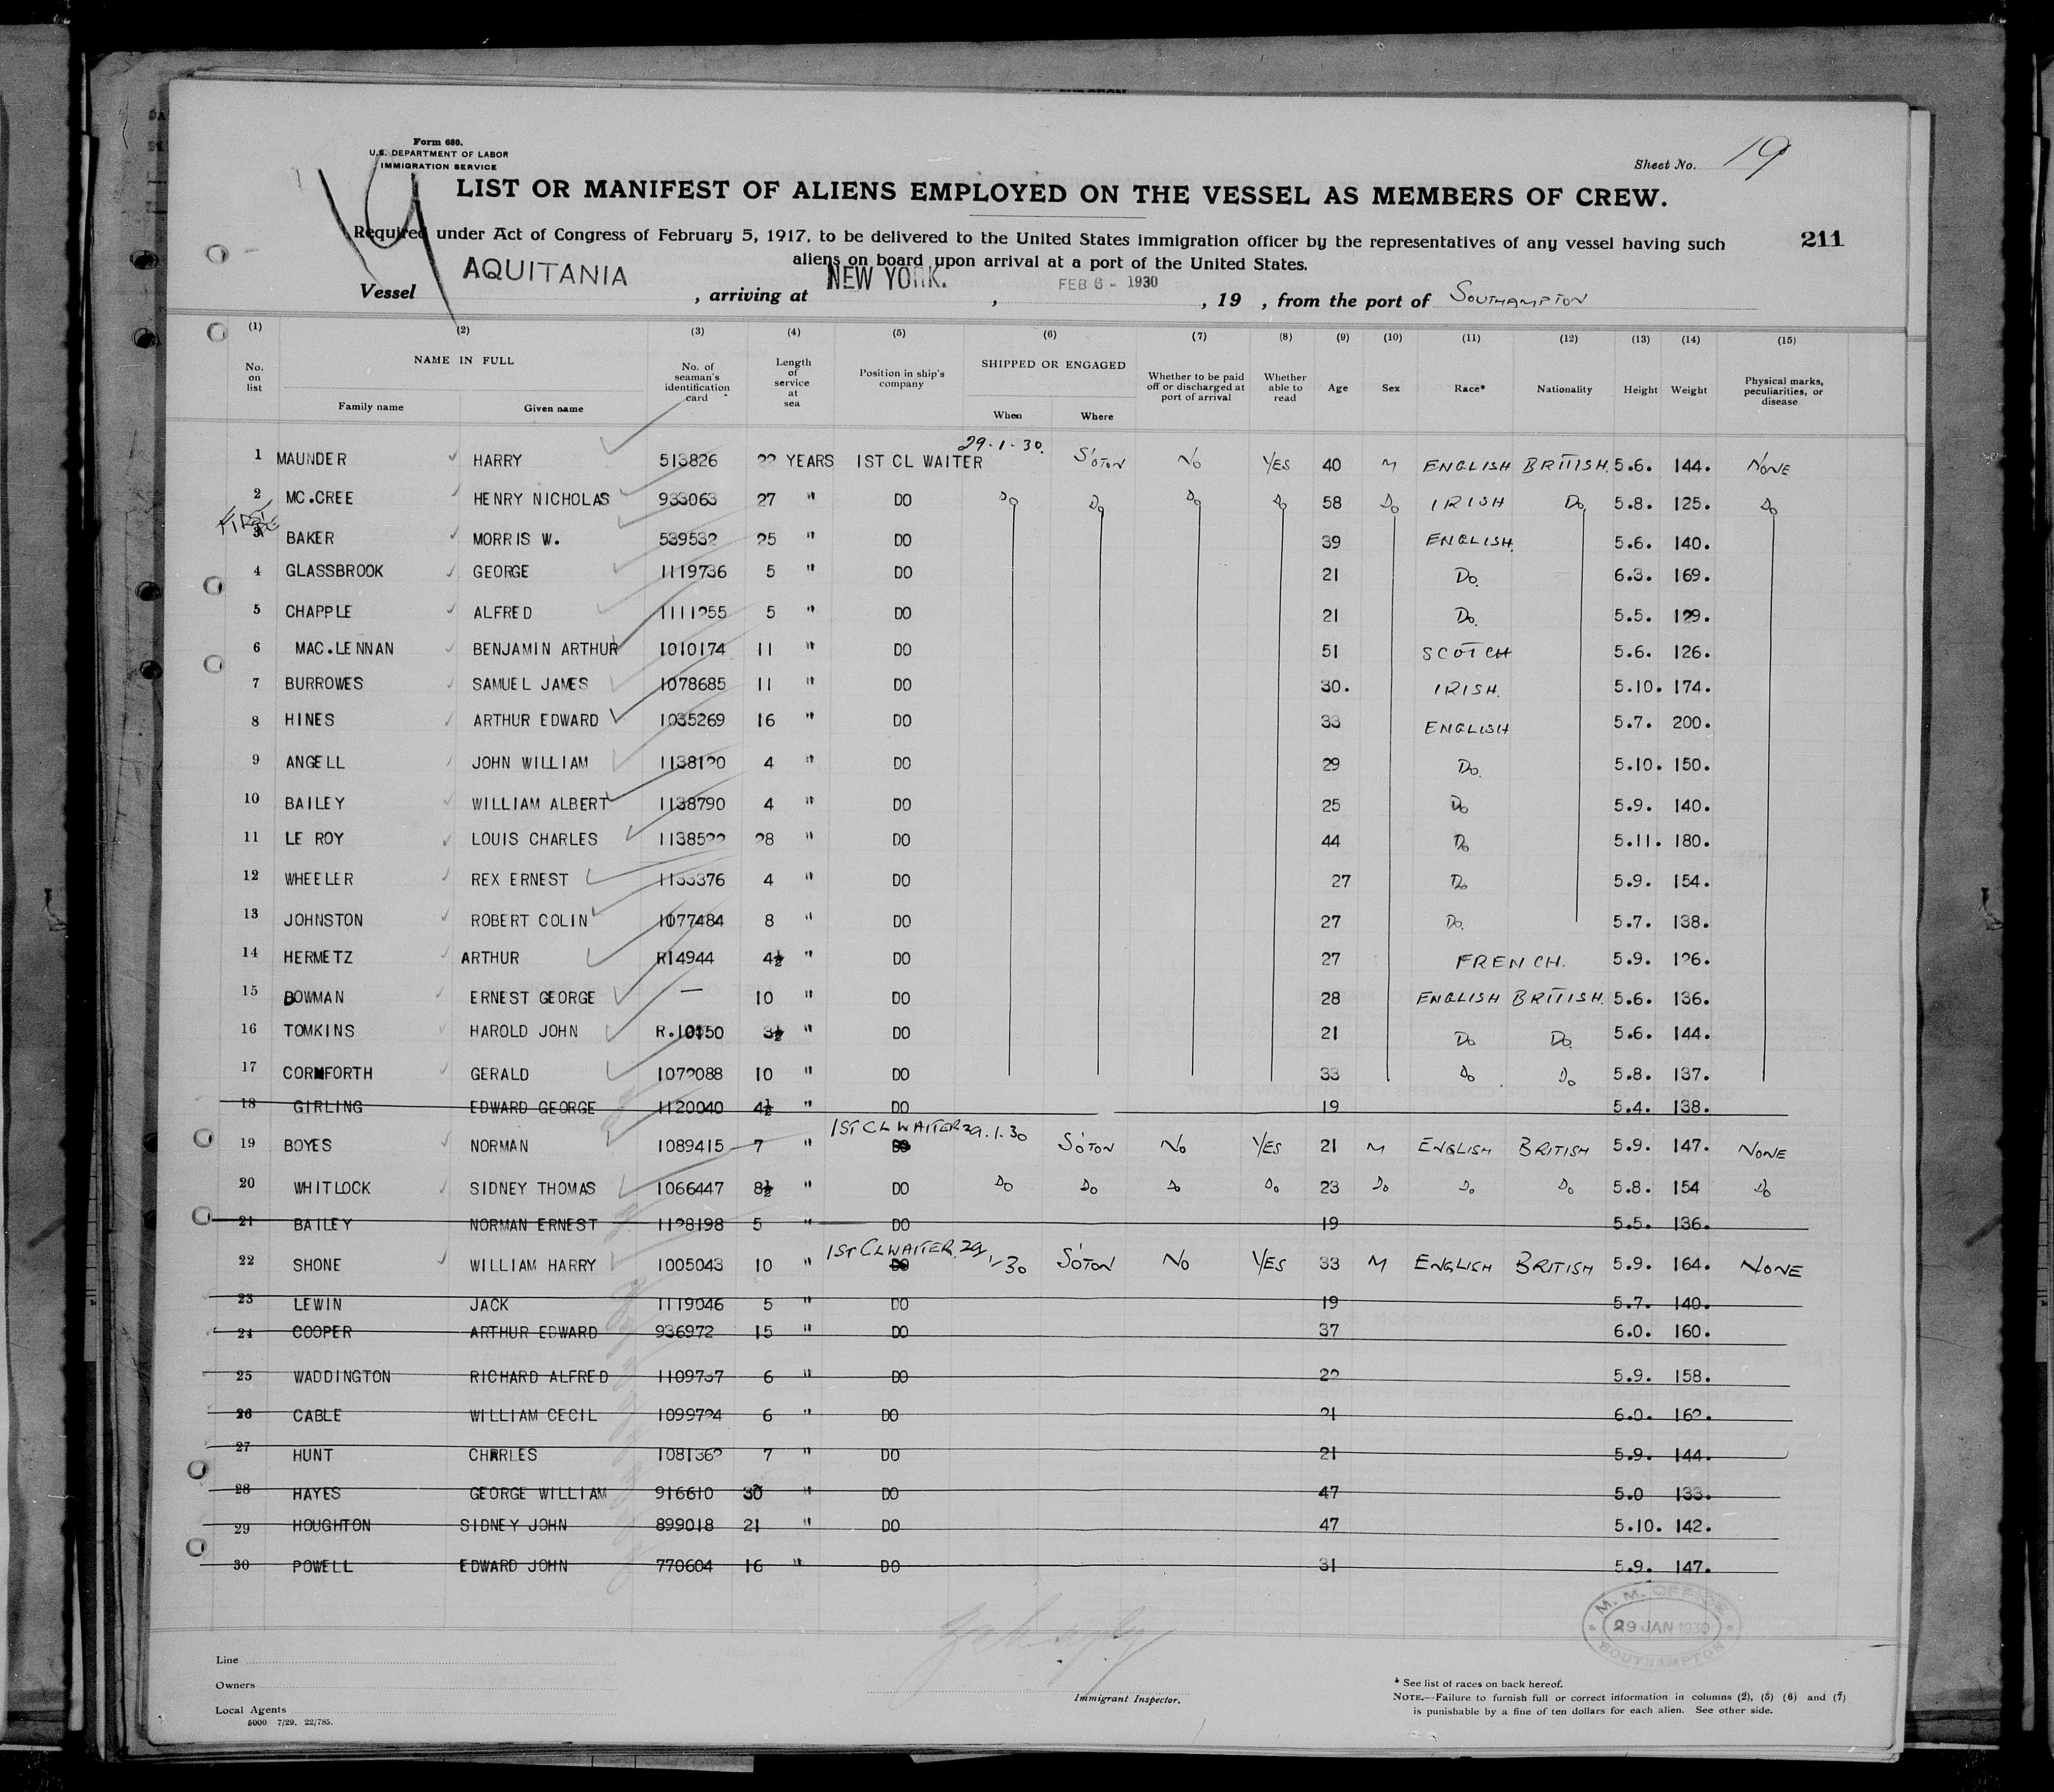 Form 680.
U.S. DEPARTMENT OF LABOR
IMMIGRATION SERVICE
Sheet No. 19
LIST OR MANIFEST OF ALIENS EMPLOYED ON THE VESSEL AS MEMBERS OF CREW.
Required under Act of Congress of February 5, 1917, to be delivered to the United States immigration officer by the representatives of any vessel having such
aliens on board upon arrival at a port of the United States.
211
Vessel AQUITANIA , arriving at NEW YORK. , FEB 6 - 1930 , 19 , from the port of SOUTHAMPTON
(1) (2) (3) (4) (5) (6) (7) (8) (9) (10) (11) (12) (13) (14) (15)
No. on list NAME IN FULL Family name Given name No. of seaman's identification card Length of service at sea Position in ship's company SHIPPED OR ENGAGED When Where Whether to be paid off or discharged at port of arrival Whether able to read Age Sex Race* Nationality Height Weight Physical marks, peculiarities, or disease
1 MAUNDER HARRY 513826 22 YEARS 1ST CL WAITER 29.1.30. S'OTON NO YES 40 M ENGLISH BRITISH. 5.6. 144. NONE
2 MC.CREE HENRY NICHOLAS 933063 27 " DO Do Do Do Do 58 Do IRISH Do 5.8. 125. Do
3 BAKER MORRIS W. 539532 25 " DO 39 ENGLISH. 5.6. 140.
4 GLASSBROOK GEORGE 1119736 5 " DO 21 Do. 6.3. 169.
5 CHAPPLE ALFRED 1111255 5 " DO 21 Do. 5.5. 129.
6 MAC.LENNAN BENJAMIN ARTHUR 1010174 11 " DO 51 SCOTCH 5.6. 126.
7 BURROWES SAMUEL JAMES 1078685 11 " DO 30. IRISH. 5.10. 174.
8 HINES ARTHUR EDWARD 1035269 16 " DO 33 ENGLISH 5.7. 200.
9 ANGELL JOHN WILLIAM 1138120 4 " DO 29 Do. 5.10. 150.
10 BAILEY WILLIAM ALBERT 1138790 4 " DO 25 Do 5.9. 140.
11 LE ROY LOUIS CHARLES 1138522 28 " DO 44 Do 5.11. 180.
12 WHEELER REX ERNEST 1133376 4 " DO 27 Do 5.9. 154.
13 JOHNSTON ROBERT COLIN 1077484 8 " DO 27 Do. 5.7. 138.
14 HERMETZ ARTHUR R14944 4½ " DO 27 FRENCH. 5.9. 126.
15 BOWMAN ERNEST GEORGE — 10 " DO 28 ENGLISH BRITISH. 5.6. 136.
16 TOMKINS HAROLD JOHN 3½ " DO 21 Do Do. 5.6. 144.
17 CORNFORTH GERALD 1072088 10 " DO 33 Do Do 5.8. 137.
18 GIRLING EDWARD GEORGE 1120040 4½ DO 19 5.4. 138.
19 BOYES NORMAN 1089415 7 " 1ST CL WAITER 29.1.30 S'OTON NO YES 21 M ENGLISH BRITISH 5.9. 147. NONE
20 WHITLOCK SIDNEY THOMAS 1066447 8½ " DO Do Do Do Do 23 Do Do Do 5.8. 154 Do
21 BAILEY NORMAN ERNEST 1128198 5 " DO 19 5.5. 136.
22 SHONE WILLIAM HARRY 1005043 10 " 1ST CL WAITER. 29/1/30 S'OTON NO YES 33 M ENGLISH BRITISH 5.9. 164. NONE
23 LEWIN JACK 1119046 5 " DO 19 5.7. 140.
24 COOPER ARTHUR EDWARD 936972 15 " DO 37 6.0. 160.
25 WADDINGTON RICHARD ALFRED 1109737 6 " DO 22 5.9. 158.
26 CABLE WILLIAM CECIL 1099724 6 " DO 21 6.0. 162.
27 HUNT CHARLES 1081362 7 " DO 21 5.9. 144.
28 HAYES GEORGE WILLIAM 916610 30 " DO 47 5.0 133.
29 HOUGHTON SIDNEY JOHN 899018 21 " DO 47 5.10. 142.
30 POWELL EDWARD JOHN 770604 16 " DO 31 5.9. 147.
M. M. OFFICE
29 JAN 1930
SOUTHAMPTON
Line
Owners
Local Agents
5000 7/29. 22/785.
Immigrant Inspector.
* See list of races on back hereof.
NOTE.—Failure to furnish full or correct information in columns (2), (5) (6) and (7)
is punishable by a fine of ten dollars for each alien. See other side.